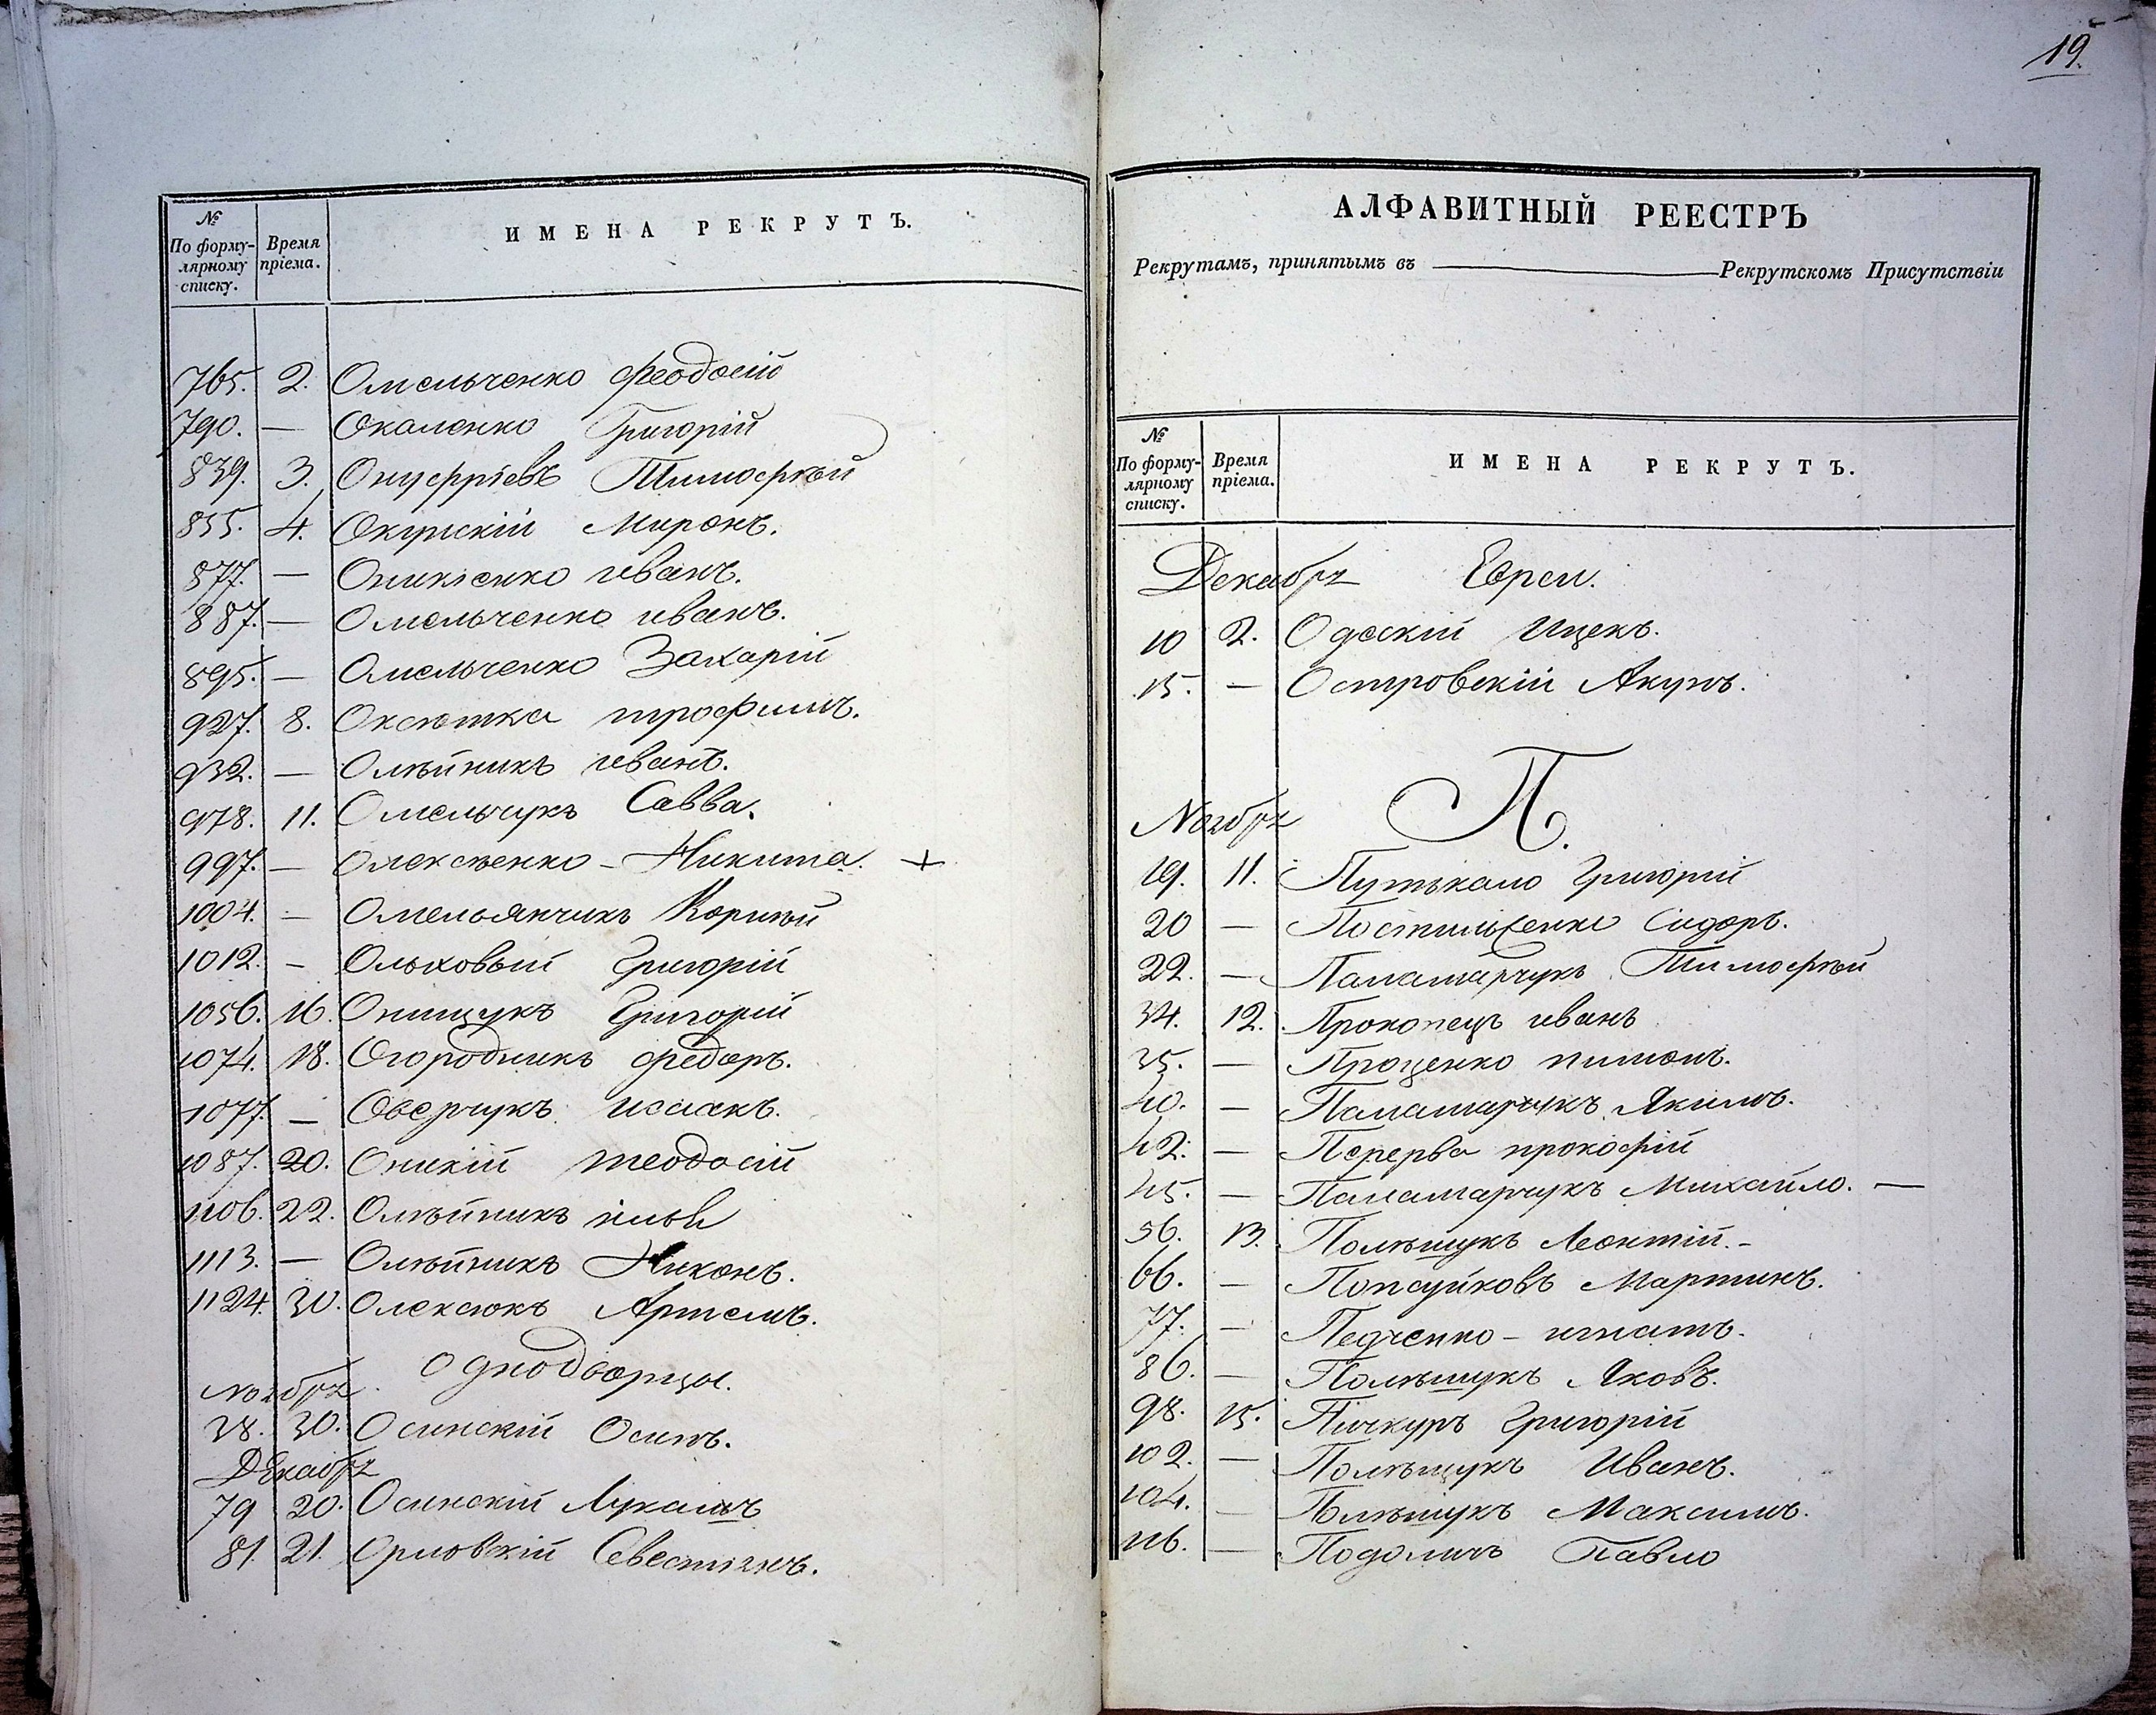 №
По форму-
лярному
списку.
Время
пріема.
ИМЕНА РЕКРУТЪ.
765. 2. Омельченко Феодосій
790. — Окаленко Григорій
839. 3. Онуфріевъ Тимофѣй
855. 4. Окунскій Миронъ.
877. — Оникіенко иванъ.
887. — Омельченко иванъ.
895. — Омельченко Захарій
927. 8. Оксютка трофимъ.
932. — Олѣйникъ иванъ.
978. 11. Омельчукъ Савва.
997. — Олексѣенко - Никита. +
1004. — Омельянчикъ Корнѣй
1012. — Ольховый Григорій
1056. 16. Онищукъ Григорій
1074. 18. Огородникъ федоръ.
1077. — Оверчукъ исаакъ.
1087. 20. Оникій теодосій
1106. 22. Олѣйникъ
1113. — Олѣйникъ Никонъ.
1124. 30. Олексюкъ Артемъ.
Однодворцы.
Ноября
38. 30. Осинскій Осипъ.
Декабря
79 20. Осинскій Лукашъ
81. 21. Орловскій Севестіянъ.
19.
АЛФАВИТНЫЙ РЕЕСТРЪ
Рекрутамъ, принятымъ въ ——— Рекрутскомъ Присутствіи
№
По форму-
лярному
списку.
Время
пріема.
ИМЕНА РЕКРУТЪ.
Декабря Евреи.
10 2. Одескій Ицекъ.
15. — Островскій Якупъ.
П.
Ноября
19. 11. Путькало Григорій
20 — Сидоръ.
22. — Паламарчукъ Тимофѣй
34. 12. Прокопецъ иванъ
35. — Проценко пимонъ.
40. — Паламарчукъ Якимъ.
42. — Перерва прокофій
45. — Паламарчукъ Михайло. —
56. 13. Полѣщукъ Леонтій. -
66. — Попсуйковъ Мартинъ.
77. — Педченко - игнатъ.
86. — Полѣщукъ Яковъ.
98. 15. Пичкуръ Григорій
102. — Полѣщукъ Иванъ.
104. — Полѣщукъ Максимъ.
116. — Подоличъ Павло